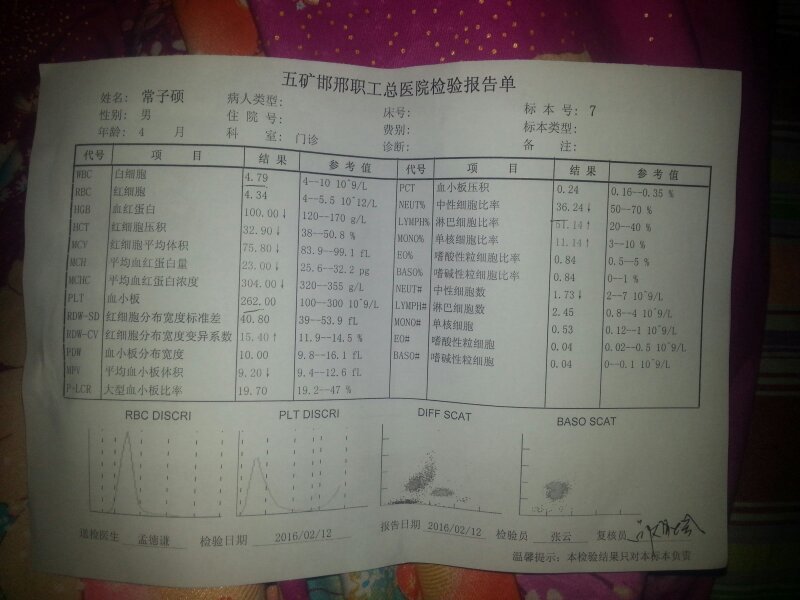 五矿邯邢职工总医院检验报告单
姓名: 常子硕 病人类型: 床号: 标本号: 7
性别: 男 住院号: 费别: 标本类型:
年龄: 4 月 科室: 门诊 诊断: 备注:
代号 项目 结果 参考值 代号 项目 结果 参考值
WBC 白细胞 4.79 4--10 10^9/L PCT 血小板压积 0.24 0.16--0.35 %
RBC 红细胞 4.34 4--5.5 10^12/L NEUT% 中性细胞比率 36.24↓ 50--70 %
HGB 血红蛋白 100.00↓ 120--170 g/L LYMPH% 淋巴细胞比率 51.14↑ 20--40 %
HCT 红细胞压积 32.90↓ 38--50.8 % MONO% 单核细胞比率 11.14↑ 3--10 %
MCV 红细胞平均体积 75.80↓ 83.9--99.1 fL EO% 嗜酸性粒细胞比率 0.84 0.5--5 %
MCH 平均血红蛋白量 23.00↓ 25.6--32.2 pg BASO% 嗜碱性粒细胞比率 0.84 0--1 %
MCHC 平均血红蛋白浓度 304.00↓ 320--355 g/L NEUT# 中性细胞数 1.73↓ 2--7 10^9/L
PLT 血小板 262.00 100--300 10^9/L LYMPH# 淋巴细胞数 2.45 0.8--4 10^9/L
RDW-SD 红细胞分布宽度标准差 40.80 39--53.9 fL MONO# 单核细胞 0.53 0.12--1 10^9/L
RDW-CV 红细胞分布宽度变异系数 15.40↑ 11.9--14.5 % EO# 嗜酸性粒细胞 0.04 0.02--0.5 10^9/L
PDW 血小板分布宽度 10.00 9.8--16.1 fL BASO# 嗜碱性粒细胞 0.04 0--0.1 10^9/L
MPV 平均血小板体积 9.20↓ 9.4--12.6 fL
P-LCR 大型血小板比率 19.70 19.2--47 %
RBC DISCRI PLT DISCRI DIFF SCAT BASO SCAT
送检医生 孟德谦 检验日期 2016/02/12 报告日期 2016/02/12 检验员 张云 复核员
温馨提示: 本检验结果只对本标本负责